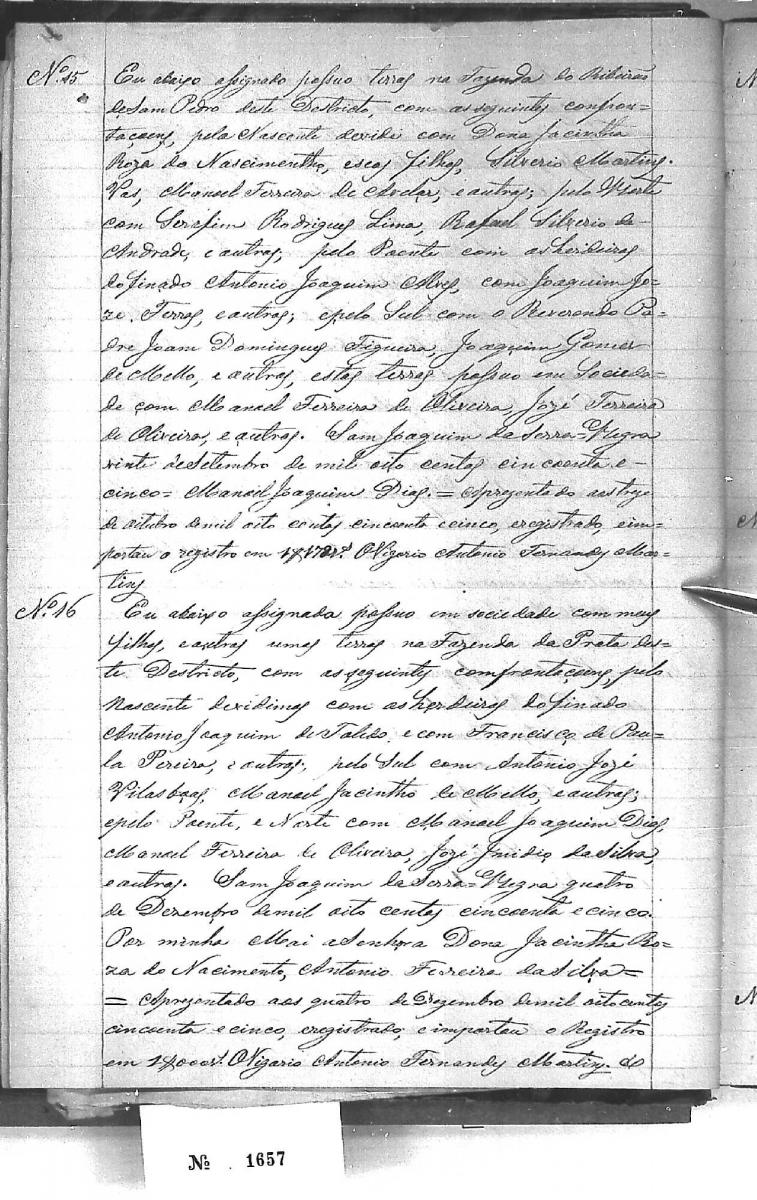 Nº 15 Eu abaixo assignado possuo terras na Fazenda do Ribeirão
de Sam Pedro deste Destricto, com as seguintes confron-
taçoens, pela Nascente devide com Dona Jacintha
Roza do Nascimentho, e seos filhos, Silverio Martins
Vas, Manoel Ferreira de Avelar, e outros; pelo Norte
com Serafim Rodrigues Lima, Rafael Silverio de
Andrade, e outros; pelo Poente com os herdeiros
do finado Antonio Joaquim Alves, com Joaquim Jo-
ze Ferras, e outros; e pelo Sul com o Reverendo Pa-
dre Joam Domingues Figueira, Joaquim Gomes
de Mello, e outros, estas terras possuo em Socieda-
de com Manoel Ferreira de Oliveira, Jozé Ferreira
de Oliveira, e outros. Sam Joaquim da Serra=Negra
vinte de Setembro de mil oito centos cincoenta e
cinco= Manoel Joaquim Dias.= Aprezentado aos treze
de outubro de mil oito centos cincoenta e cinco, e registrado, e im-
portou o registro em O Vigario Antonio Fernandes Mar-
tins
Nº 16 Eu abaixo assignada possuo em sociedade com meus
filhos, e outros umas terras na Fazenda da Prata des-
te Destricto, com as seguintes comfrontaçoens, pelo
Nascente devidimos com os herdeiros do finado
Antonio Joaquim de Toledo, e com Francisco de Pau-
la Pereira, e outros; pelo Sul com Antonio Jozé
Vilasboas, Manoel Jacintho de Mello, e outros;
e pelo Poente, e Norte com Manoel Joaquim Dias,
Manoel Ferreira de Oliveira, Jozé Inidio da Silva,
e outros. Sam Joaquim da Serra=Negra quatro
de Dezembro de mil oito centos cincoenta e cinco.
Por minha Mai a Senhora Dona Jacintha Ro-
za do Nacimento, Antonio Ferreira da Silva=
= Aprezentado aos quatro de Dezembro de mil oito centos
cincoenta e cinco, e registrado, e importou o Registro
em 1$000rs. O Vigario Antonio Fernandes Martins.
Nº 1657